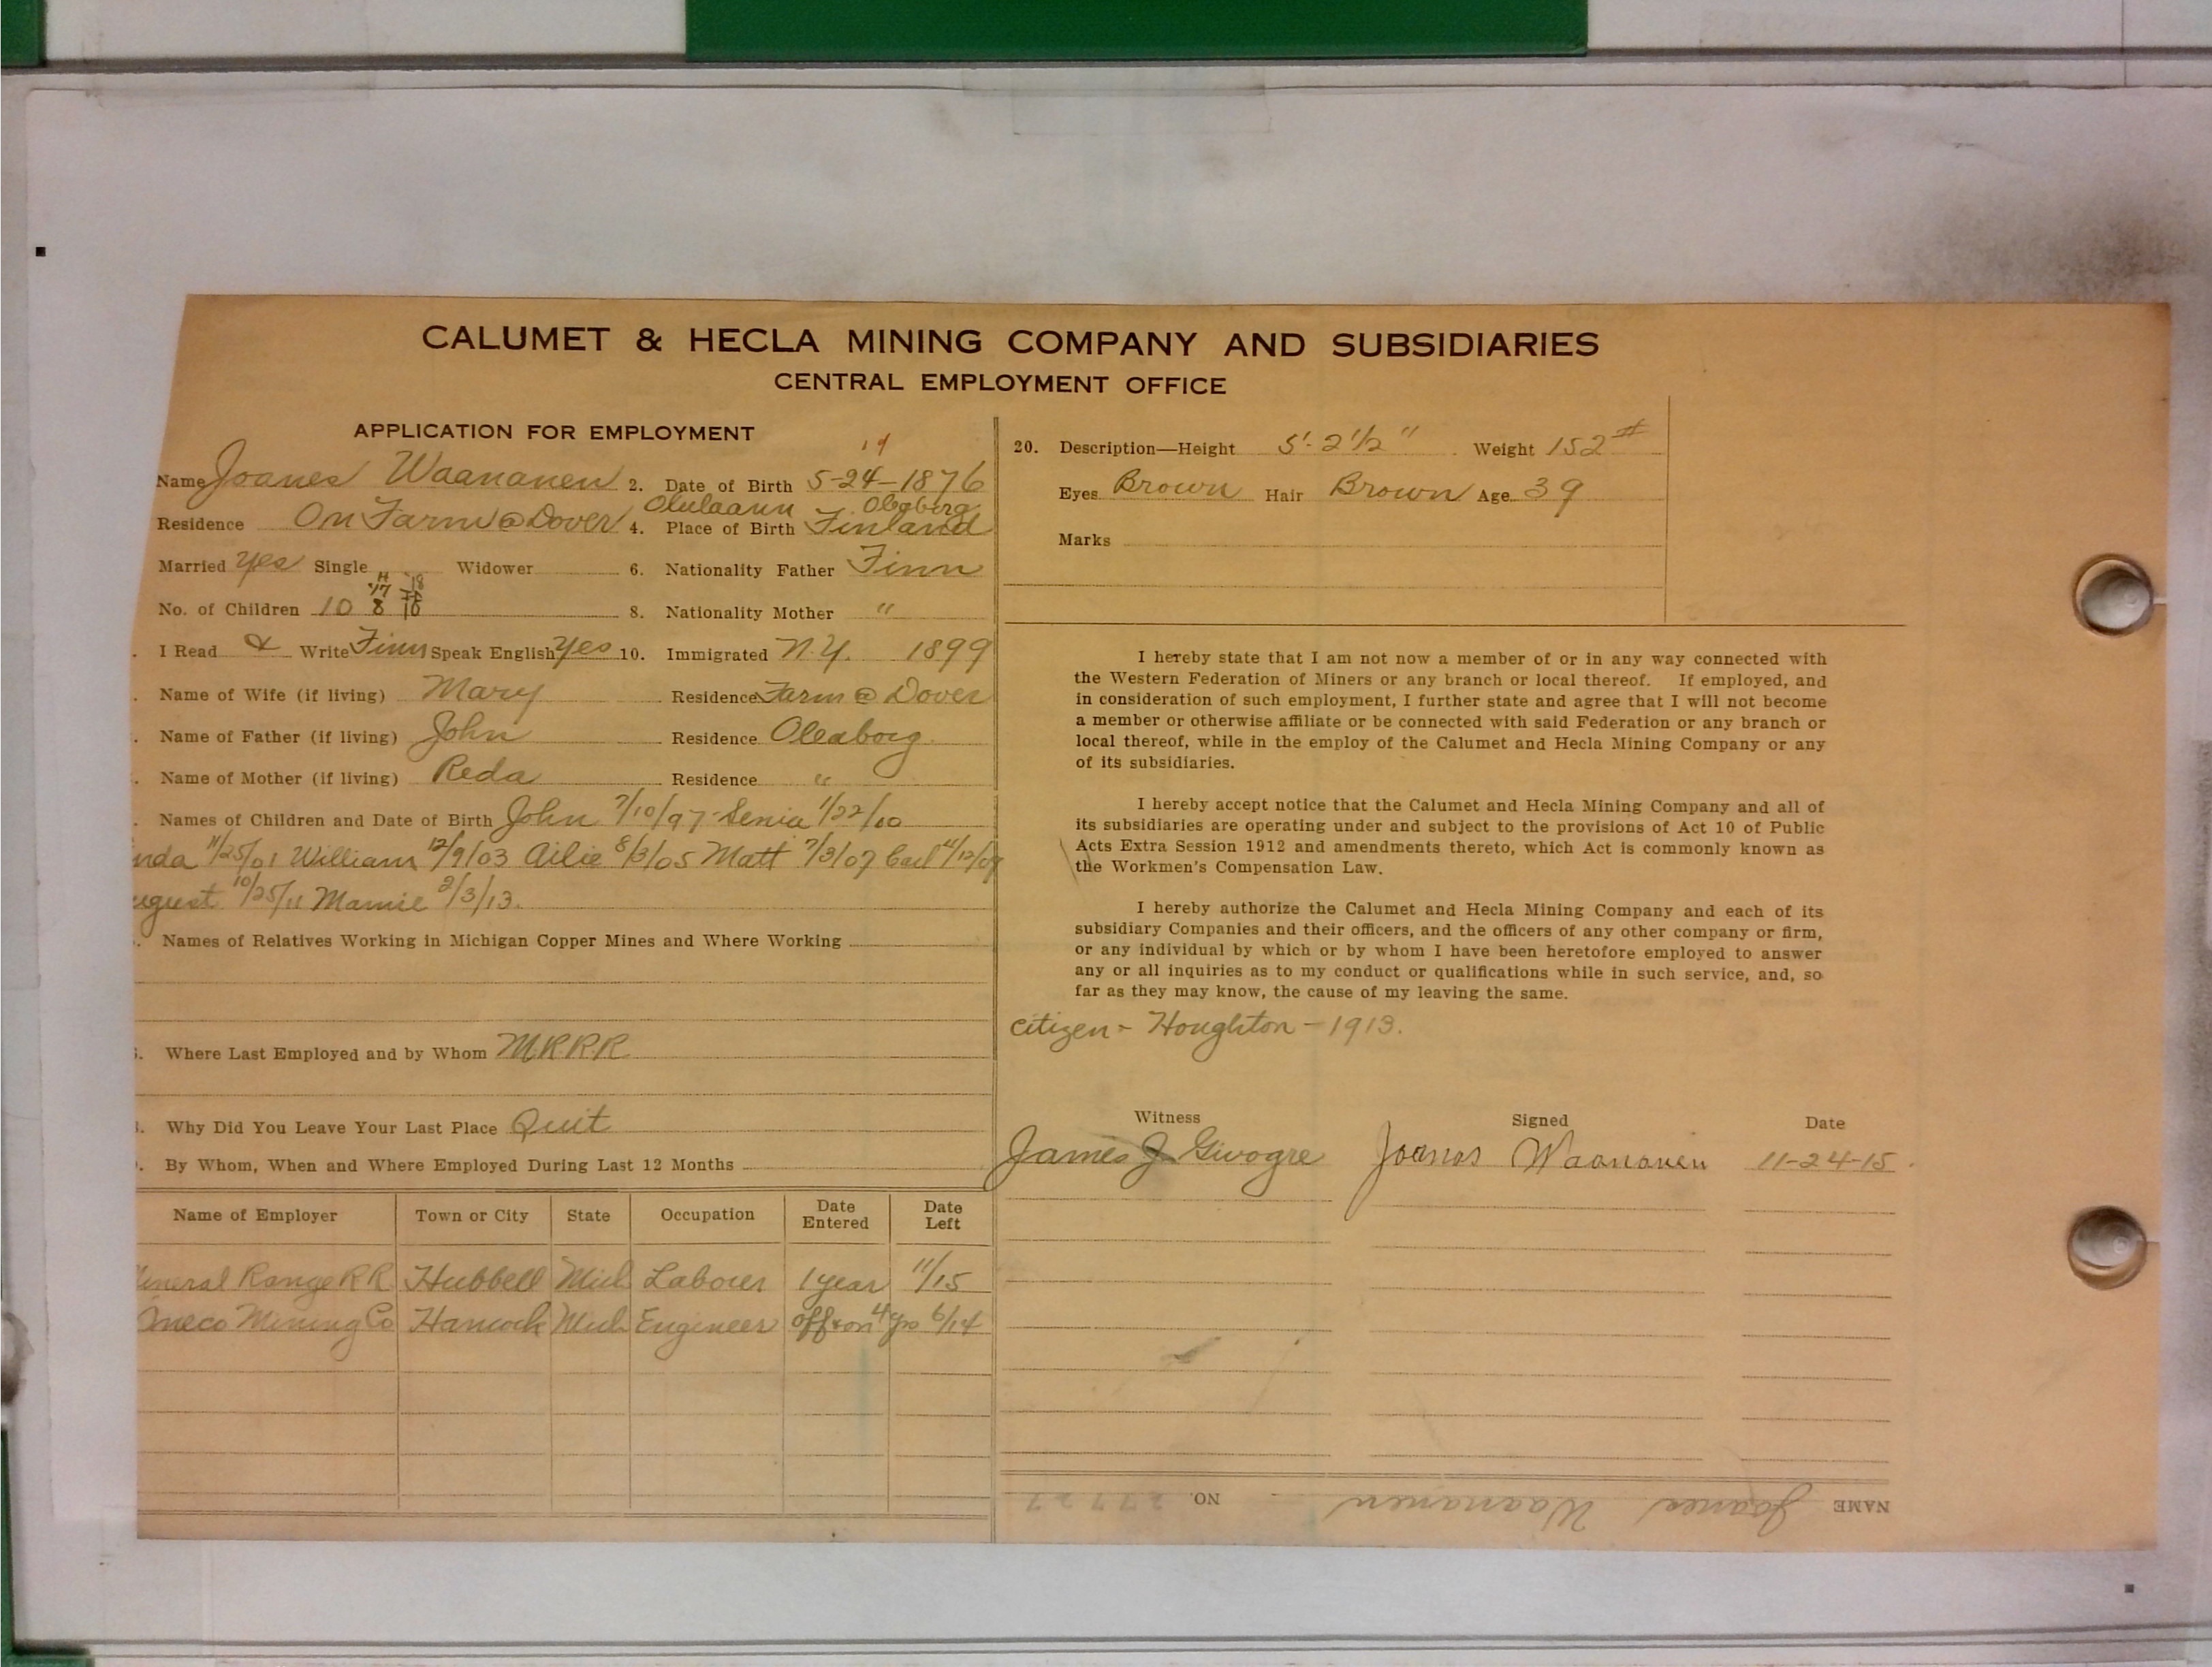 CALUMET & HECLA MINING COMPANY AND SUBSIDIARIES
CENTRAL EMPLOYMENT OFFICE
APPLICATION FOR EMPLOYMENT
Name Joanes Waananen 2. Date of Birth 5-24-1876
Residence On Farm @ Dover 4. Place of Birth Finland
Married Yes Single Widower 6. Nationality Father Finn
No. of Children 10 8 10 8. Nationality Mother "
I Read & Write Finn Speak English Yes 10. Immigrated N.Y. 1899
Name of Wife (if living) Mary Residence Farm @ Dover
Name of Father (if living) John Residence Oleaborg
Name of Mother (if living) Reda Residence "
Names of Children and Date of Birth John 7/10/97 - Senia 1/22/00
nda 11/25/01 William 12/9/03 Ailie 8/3/05 Matt 7/3/07 Carl 4/12/09
ugust 10/25/11 Mamie 2/3/13.
Names of Relatives Working in Michigan Copper Mines and Where Working
Where Last Employed and by Whom M.R.R.R
Why Did You Leave Your Last Place Quit
By Whom, When and Where Employed During Last 12 Months
Name of Employer Town or City State Occupation Date Entered Date Left
ineral Range R R Hubbell Mich Laborer 1 year 11/15
Mining Co Hancock Mich Engineer off & on 4 yrs 6/14
20. Description—Height 5'-2 1/2" Weight 152#
Eyes Brown Hair Brown Age 39
Marks
I hereby state that I am not now a member of or in any way connected with
the Western Federation of Miners or any branch or local thereof. If employed, and
in consideration of such employment, I further state and agree that I will not become
a member or otherwise affiliate or be connected with said Federation or any branch or
local thereof, while in the employ of the Calumet and Hecla Mining Company or any
of its subsidiaries.
I hereby accept notice that the Calumet and Hecla Mining Company and all of
its subsidiaries are operating under and subject to the provisions of Act 10 of Public
Acts Extra Session 1912 and amendments thereto, which Act is commonly known as
the Workmen's Compensation Law.
I hereby authorize the Calumet and Hecla Mining Company and each of its
subsidiary Companies and their officers, and the officers of any other company or firm,
or any individual by which or by whom I have been heretofore employed to answer
any or all inquiries as to my conduct or qualifications while in such service, and, so
far as they may know, the cause of my leaving the same.
citizen - Houghton - 1913.
Witness Signed Date
James J. Joanes Waananen 11-24-15.
NAME Joanes Waananen NO. 27727